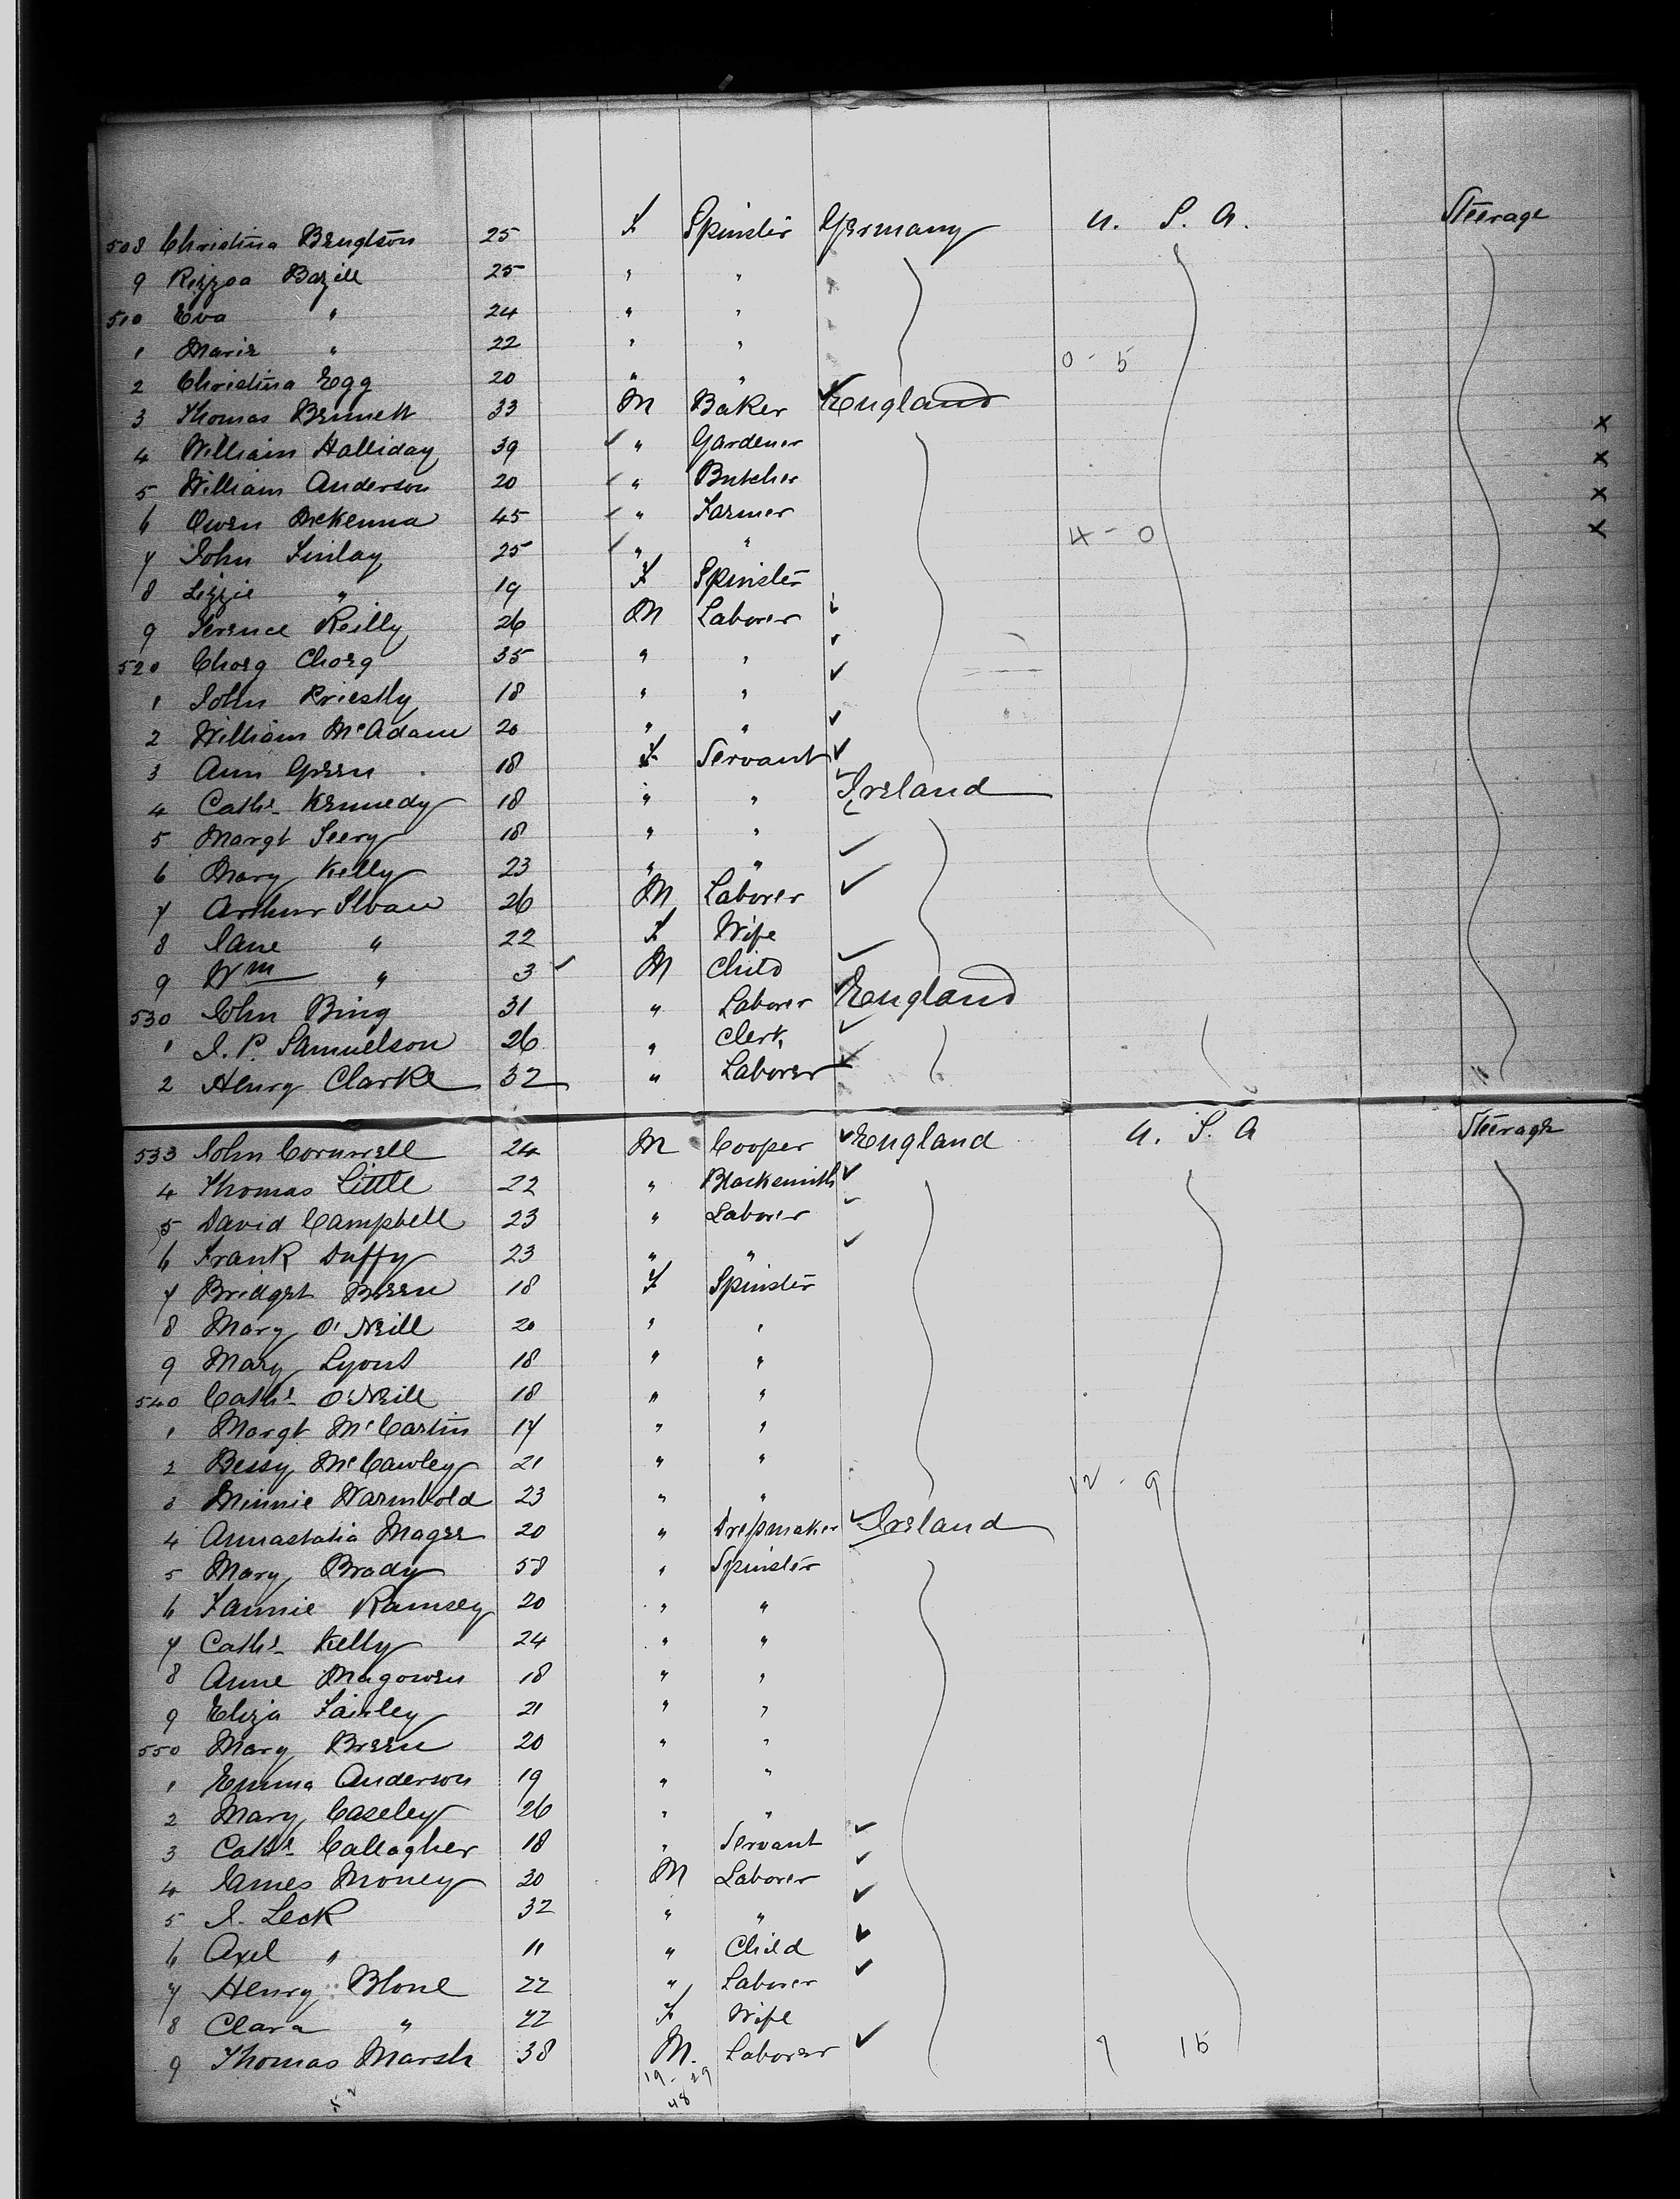 508 Christina Bengtson 25 F Spinster Germany U. S. A. Steerage
9 Rizzoa Bazill 25 " "
510 Eva " 24 " "
1 Marie " 22 " "
0 - 5
2 Christina Egg 20 " "
3 Thomas Bennett 33 M Baker ✓ England
4 William Halliday 39 ✓ " Gardener x
5 William Anderson 20 ✓ " Butcher x
6 Owen McKenna 45 ✓ " Farmer x
7 John Finlay 25 ✓ " " 4 - 0 x
8 Lizzie " 19 F Spinster
9 Terence Reilly 26 M Laborer ✓
520 Chorg Chorg 35 " " ✓
1 John Priestly 18 " " ✓
2 William McAdam 20 " " ✓
3 Ann Green 18 F Servant ✓
4 Cathe Kennedy 18 " " ✓ Ireland
5 Margt Seery 18 " "
6 Mary Kelly 23 " " ✓
7 Arthur Sloan 26 M Laborer ✓
8 Jane " 22 F Wife
9 Wm " 3 ✓ M Child ✓
530 John Bing 31 " Laborer ✓ England
1 J. P. Samuelson 26 " Clerk ✓
2 Henry Clarke 32 " Laborer ✓
533 John Cornwell 24 M Cooper ✓ England U. S. A Steerage
4 Thomas Little 22 " Blacksmith ✓
5 David Campbell 23 " Laborer ✓
6 Frank Duffy 23 " " ✓
7 Bridget Breen 18 F Spinster
8 Mary O'Neill 20 " "
9 Mary Lyons 18 " "
540 Cathe O'Neill 18 " "
1 Margt McCartin 17 " "
2 Bessy McCawley 21 " "
3 Minnie Warmbold 23 " " 12 - 9
4 Annastatia Magee 20 " Dressmaker ✓ Ireland
5 Mary Brady 58 " Spinster
6 Fannie Ramsey 20 " "
7 Cathe Kelly 24 " "
8 Anne Magowen 18 " "
9 Eliza Fairley 21 " "
550 Mary Breen 20 " "
1 Emma Anderson 19 " "
2 Mary Caseley 26 " "
3 Cathe Callagher 18 " Servant ✓
4 James Money 30 M Laborer ✓
5 J. Leck 32 " " ✓
6 Axel " 11 " Child ✓
7 Henry Blone 22 " Laborer ✓
8 Clara " 22 F Wife
9 Thomas Marsh 38 M. Laborer ✓ 7 15
19 - 29
48